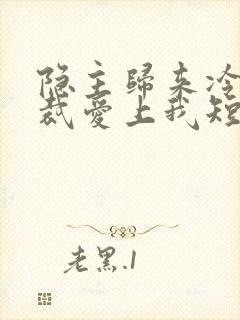 隐主歸来冷
裁愛上我短
老黑.1